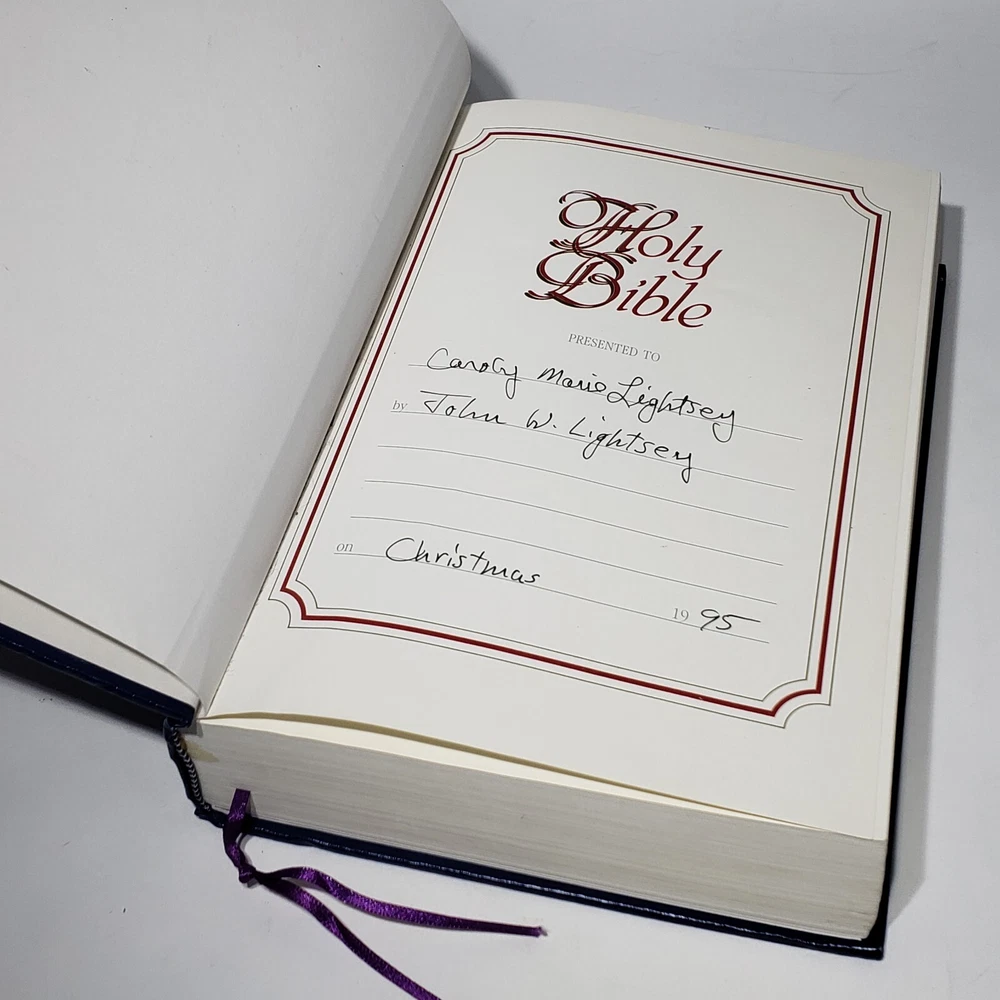 Holy
Bible
PRESENTED TO
Caroly Marie Lightsey
by John W. Lightsey
on Christmas
19 95